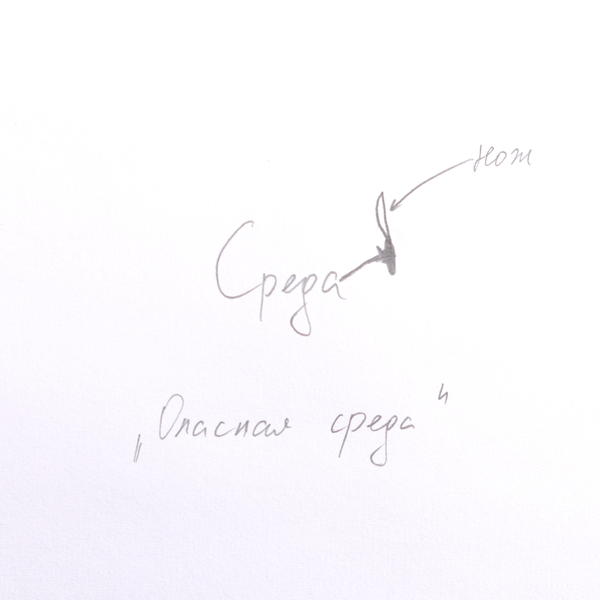 нож
Среда
„Опасная среда"